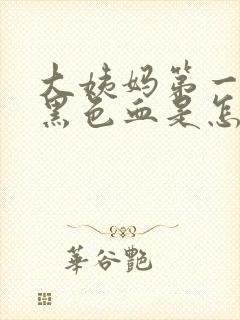 大姨妈第一
黑色血是怎
華谷艷